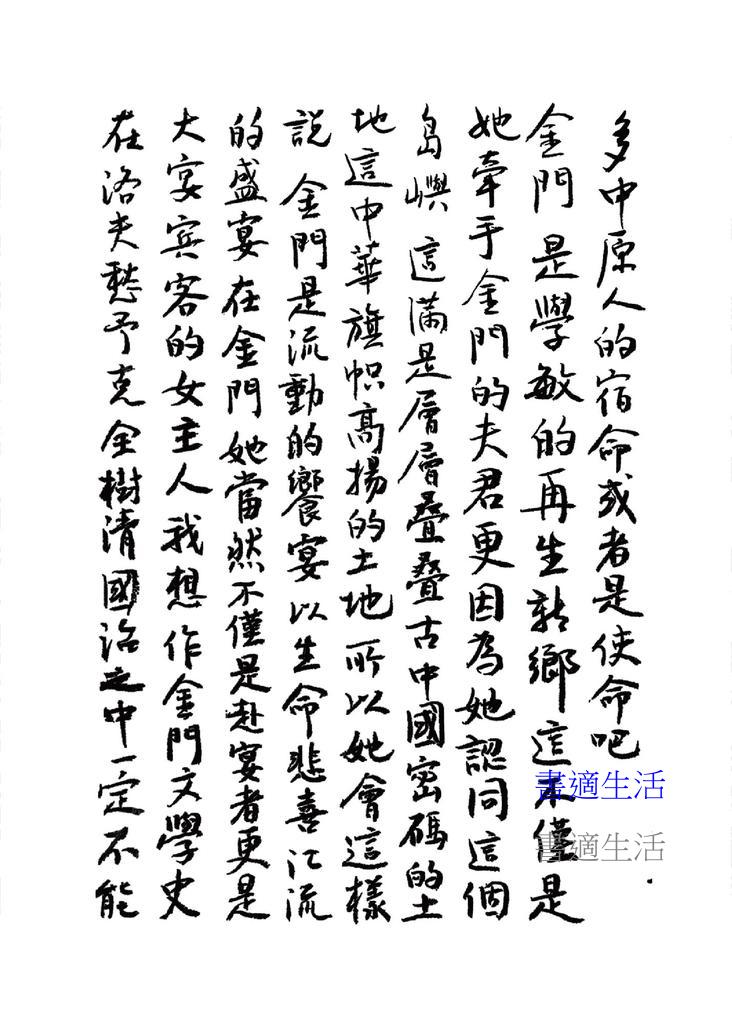 多中原人的宿命或者是使命吧
金門 是學敏的再生新鄉這不僅是
她牽手金門的夫君更因為她認同這個
島嶼 這滿是層層疊疊古中國密碼的土
地這中華旗幟高揚的土地所以她會這樣
說 金門是流動的饗宴以生命悲喜江流
的盛宴在金門她當然不僅是赴宴者更是
大宴賓客的女主人我想作金門文學史
在洛夫愁予克全樹清國治之中一定不能
書適生活
書適生活